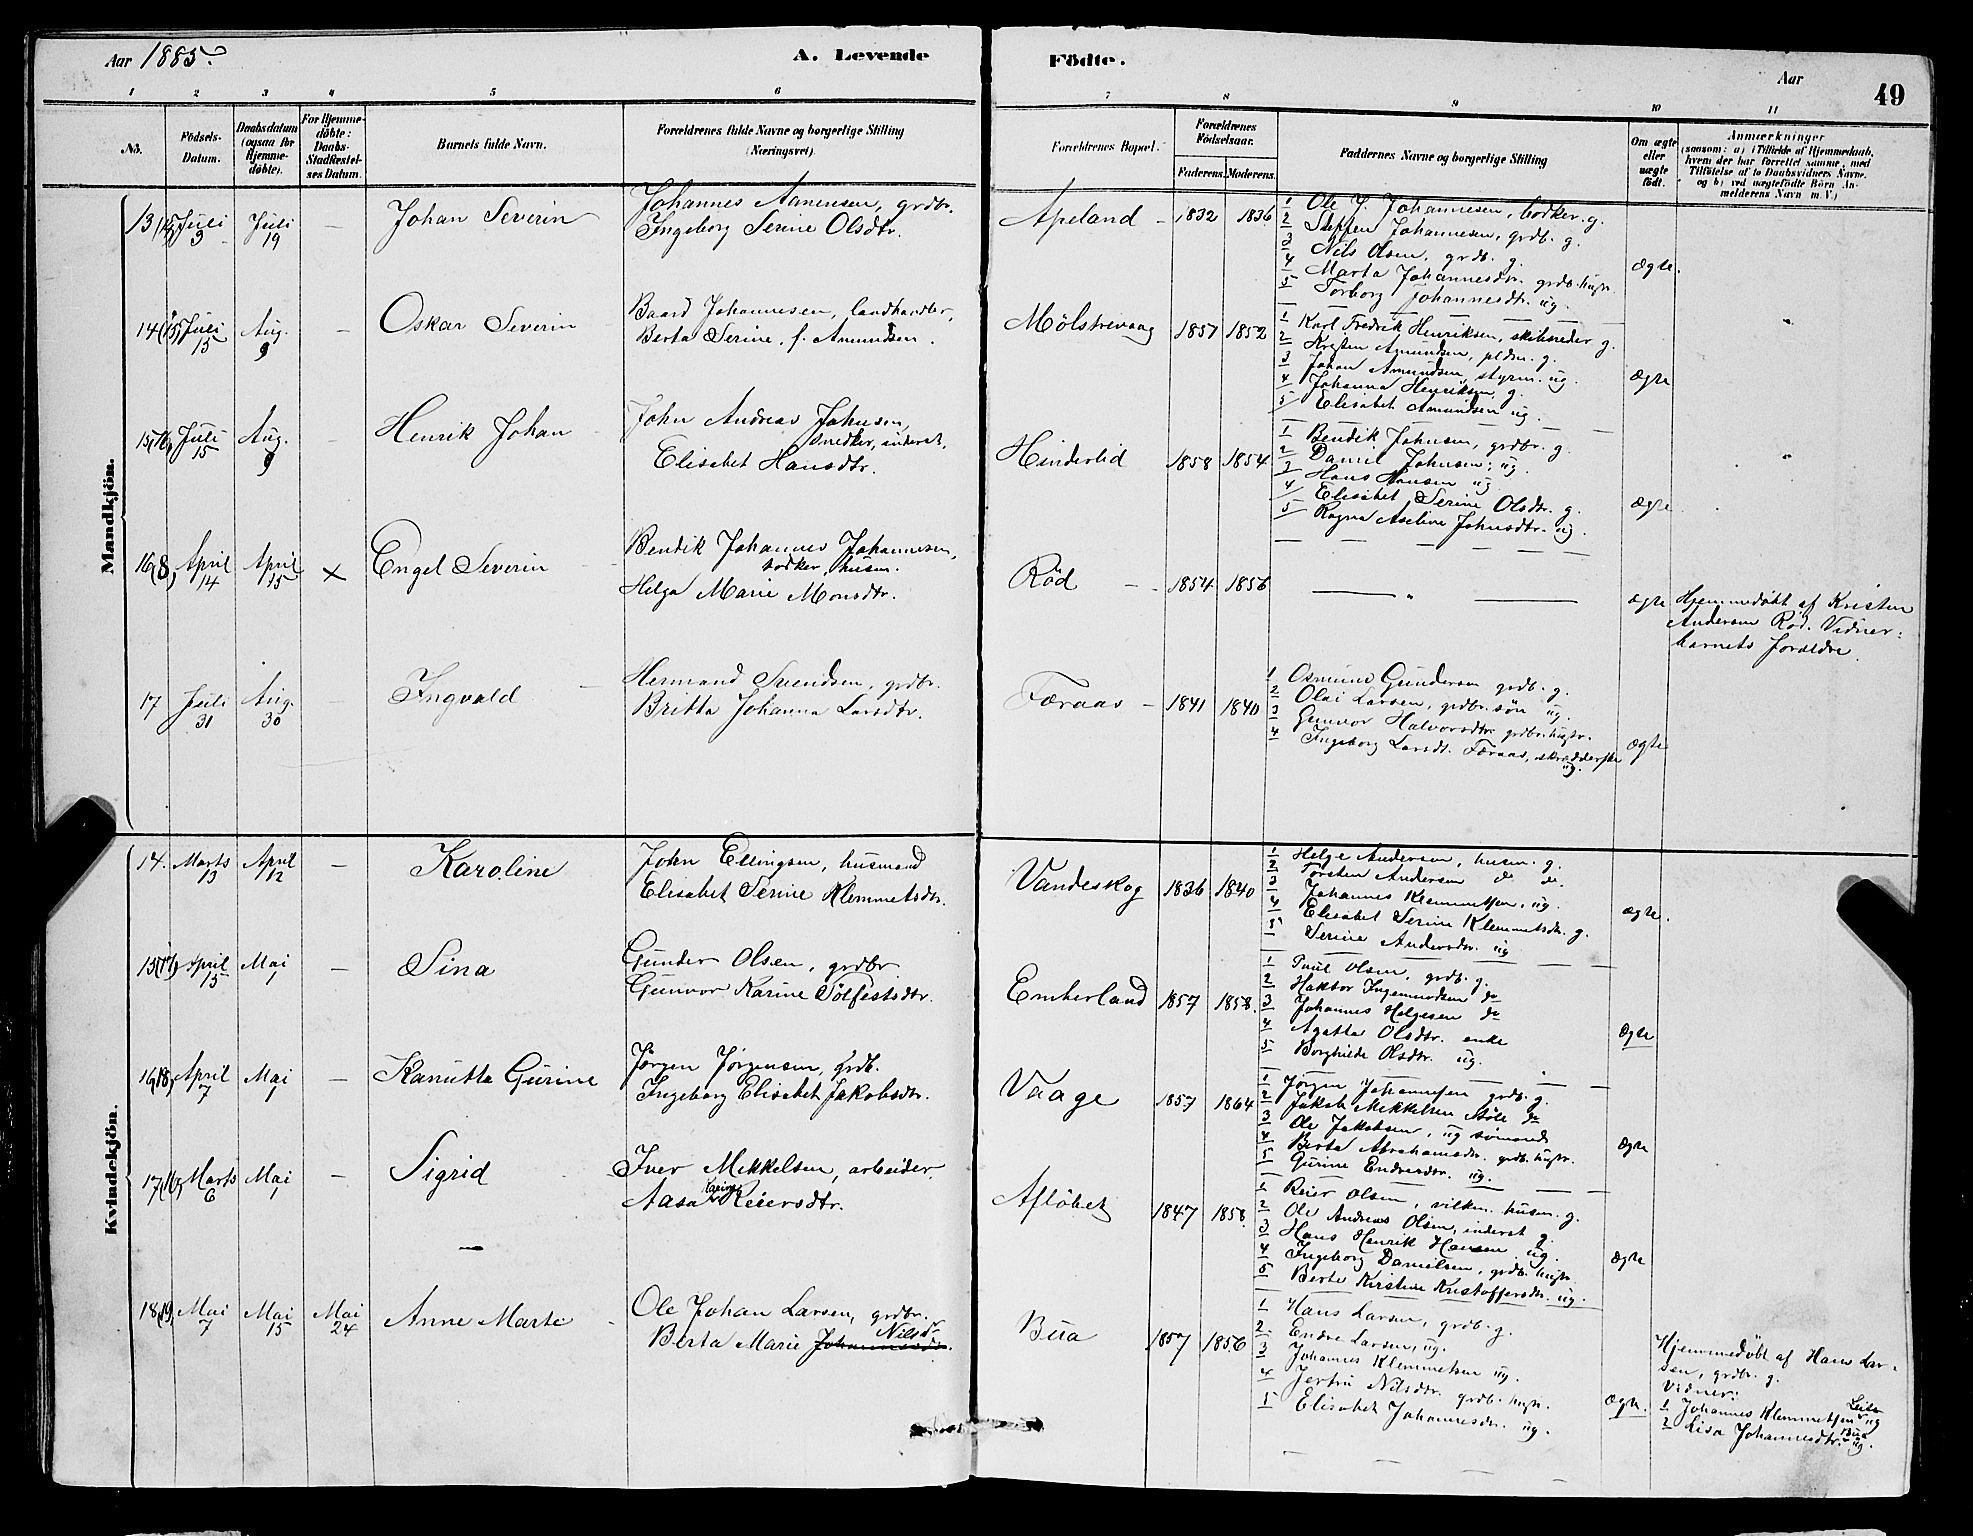 Aar 1885.
A. Levende
Födte.
Aar
49
1 2 3 4 5 6 7 8 9 10 11
No.
Födsels-Datum.
Daabsdatum (ogsaa for Hjemmedøbte).
For Hjemmedøbte: Daabs-Stadfæstelses Datum.
Barnets fulde Navn.
Forældrenes fulde Navne og borgerlige Stilling (Næringsvei).
Forældrenes Bopæl.
Forældrenes Födselsaar.
Faderens. Moderens.
Faddernes Navne og borgerlige Stilling
Om ægte eller uægte födt.
Anmærkninger
(saasom: a) i Tilfælde af Hjemmedaab, hvem der har forrettet samme, med Tilføielse af to Daabsvidners Navne, og b) ved uægtefödte Börn Anmelderens Navn m. V.)
Mandkjön.
13 Juli 9 Juli 19 – Johan Severin
Johannes Aanensen, grdbr.
Ingeborg Serine Olsdtr.
Apeland – 1832 1836
1 Ole J. Johannesen, bødker. g.
2 Steffen Johannesen, grdb. g.
3 Nils Olsen, grdb. g.
4 Marta Johannesdtr. grdb. hustr.
5 Torborg Johannesdtr. ug.
Ægte.
14 (15) Juli 15 Aug. 9 – Oskar Severin
Baard Johannesen, landhandler,
Berta Serine, f. Amundsen.
Mølstrevaag 1857 1852
1 Karl Fredrik Henriksen, skibsreder g.
2 Kristen Amundsen, g.
3 Johan Amundsen, styrm. ug.
4 Johanna Henriksen g.
5 Elisabet Amundsen ug.
Ægte
15 (16) Juli 15 Aug. 9 – Henrik Johan
John Andreas Johnsen,
snedker, inderst.
Elisabet Hansdtr.
Hinderlid 1858 1854
1 Bendik Johnsen, grdbr. g.
2 Daniel Johnsen, ug.
3 Hans Hansen ug
4 Elisabet Serine Olsdtr. g.
5 Ragna Aseline Johnsdtr. ug.
Ægte
16 (8) April 14 April 15 × Engel Severin
Bendik Johannes Johannesen,
bødker, husm.
Helga Marie Monsdtr.
Röd – 1854 1856
— " —
ægte
Hjemmedøbt af Kristen
Andersen Röd. Vidner:
barnets forældre.
17 Juli 31 Aug. 30 – Ingvald
Hermand Svendsen, grdbr.
Britta Johanna Larsdtr.
Færaas – 1841 1840
1 Osmund Gundersen grdb. g.
2 Olai Larsen, grdbr. søn ug.
3 Gunvor Halvorsdtr. grdbr. hustr.
4 Ingeborg Larsdt. Færaas, skrædderske
ug.
ægte
Kvindekjön.
14. Marts 13 April 12 – Karoline
John Ellingsen, husmand
Elisabet Serine Klemmetsdtr.
Vandeskog 1836 1840
1 Helge Andersen, husm. g.
2 Torsten Andersen do do.
3 Johannes Klemmetsen, ug.
4 Elisabet Serine Klemmetsdtr. g.
5 Serine Andersdtr. ug
ægte.
15 (17) April 15 Mai 1 – Sina
Gunder Olsen, grdbr
Gunvor Karine Sölfestsdtr.
Emberland 1857 1858.
1 Poul Olsen, grdb. g.
2 Haktor Ingemundsen do
3 Johannes Helgesen do
4 Agatha Olsdtr. enke
5 Borghilde Olsdtr. ug.
Ægte
16 (18) April 7 Mai 1 – Kanutta Gurine
Jørgen Jørgensen, grdb.
Ingeborg Elisabet Jakobsdtr.
Vaage 1857 1864
1 Jørgen Johannesen grdb. g.
2 Jakob Mikkelsen do
3 Ole Jakobsen, ug sømand
4 Berta Abrahamsdtr. grdb. hustr.
5 Gurine Endresdtr. ug.
Ægte
17 (16) Marts 6 Mai 1 – Sigrid
Iver Mikkelsen, arbeider.
Aasa Karine Reiersdtr.
Afløbet 1847 1858.
1 Reier Olsen, husm. g.
2 Ole Andreas Olsen, inderst g.
3 Hans Henrik Hansen ug.
4 Ingeborg Danielsen, grdb. hustr.
5 Berte Kirstine Kristoffersdtr. ug.
Ægte
18 (19) Mai 7 Mai 15 Mai 24 Anne Marte
Ole Johan Larsen, grdbr.
Berta Marie Johannesdtr. Nilsdr
Bua 1857 1856
1 Hans Larsen, grdb. g.
2 Endre Larsen, ug.
3 Johannes Klemmetsen ug.
4 Jertru Nilsdtr. grdb. hustr.
5 Elisabet Johannesdtr. ug.
Ægte.
Hjemmedøbt af Hans Lar-
sen, grdbr. g.
Vidner:
1 Johannes Klemmetsen ug
2 Lisa Johannesdtr. Bua ug.